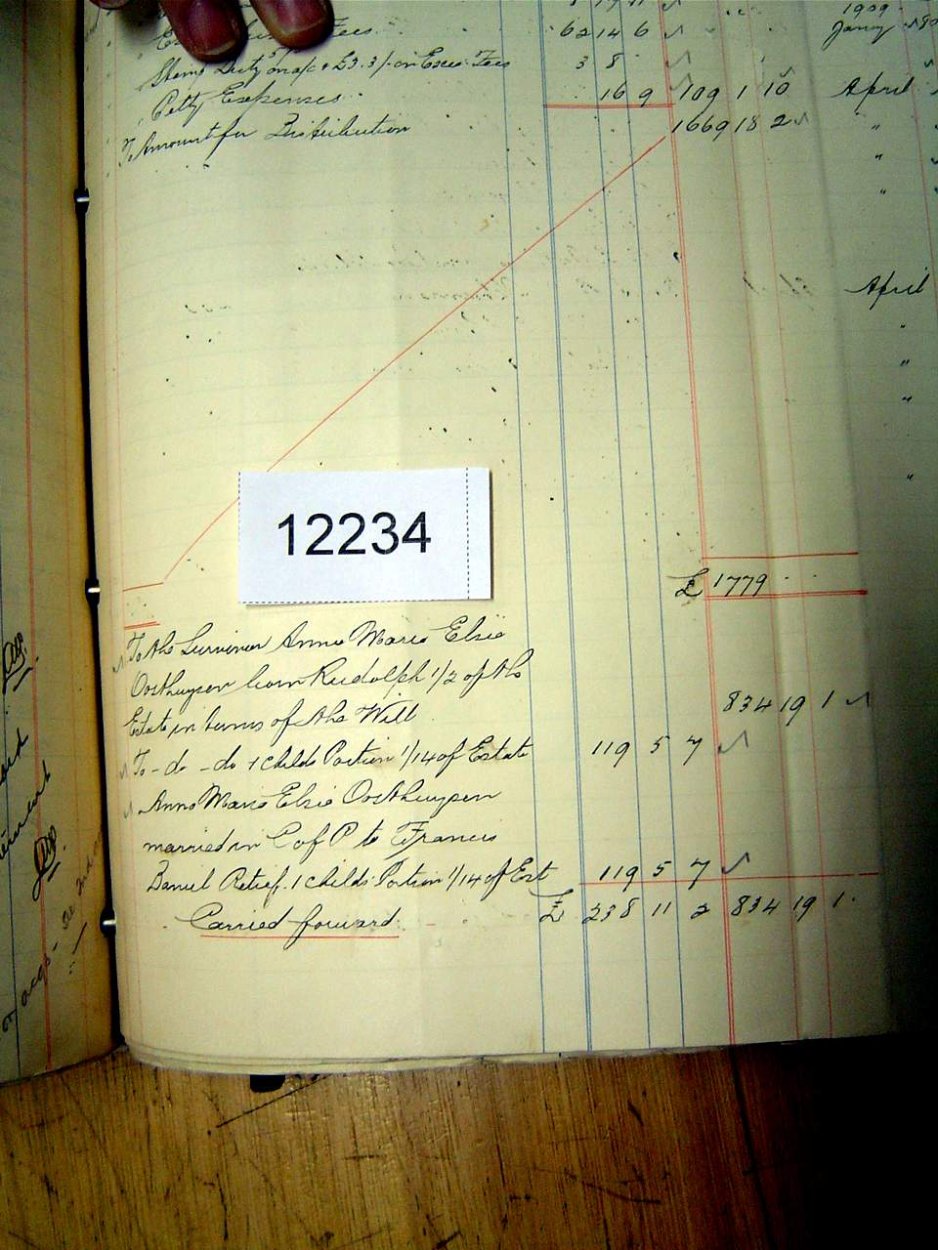 1909
Fees 62 14 6 Jany
Stamp Duty on a/c & £3.3/- on Exec. Fees 3 8
Petty Expenses 16 9 109 1 10 April
To Amount for Distribution 1669 18 2 "
"
"
April
"
"
"
"
12234
£ 1779 . .
To the Survivor Anna Maria Elsie
Oosthuysen born Rudolph 1/2 of the
Estate in terms of the Will 834 19 1
To - do - do 1 Childs Portion 1/14 of Estate 119 5 7
Anna Maria Elsie Oosthuysen
married in C of P to Francis
Daniel Retief. 1 Childs Portion 1/14 of Est 119 5 7
Carried forward £ 238 11 2 834 19 1